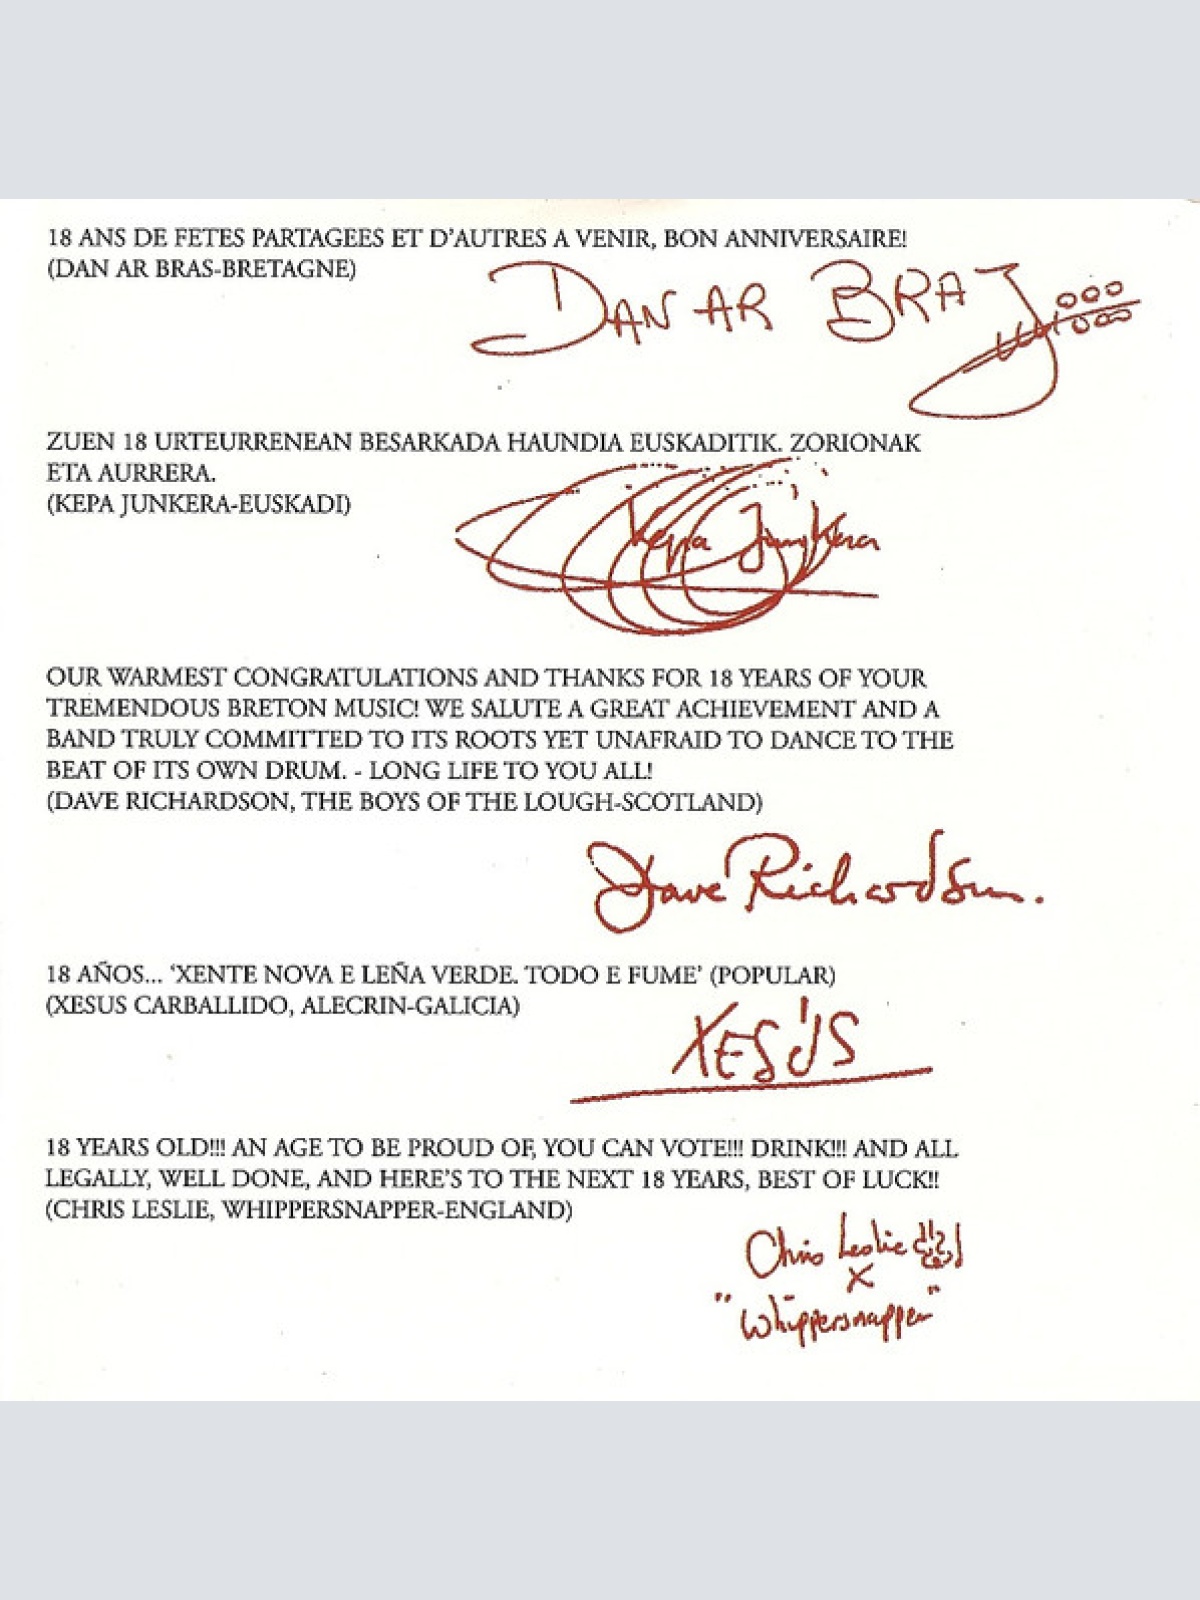 18 ANS DE FETES PARTAGEES ET D'AUTRES A VENIR, BON ANNIVERSAIRE!
(DAN AR BRAS-BRETAGNE)
DAN AR BRAZ
ZUEN 18 URTEURRENEAN BESARKADA HAUNDIA EUSKADITIK. ZORIONAK
ETA AURRERA.
(KEPA JUNKERA-EUSKADI)
Kepa Junkera
OUR WARMEST CONGRATULATIONS AND THANKS FOR 18 YEARS OF YOUR
TREMENDOUS BRETON MUSIC! WE SALUTE A GREAT ACHIEVEMENT AND A
BAND TRULY COMMITTED TO ITS ROOTS YET UNAFRAID TO DANCE TO THE
BEAT OF ITS OWN DRUM. - LONG LIFE TO YOU ALL!
(DAVE RICHARDSON, THE BOYS OF THE LOUGH-SCOTLAND)
Dave Richardson.
18 AÑOS... ‘XENTE NOVA E LEÑA VERDE. TODO E FUME’ (POPULAR)
(XESUS CARBALLIDO, ALECRIN-GALICIA)
XESÚS
18 YEARS OLD!!! AN AGE TO BE PROUD OF, YOU CAN VOTE!!! DRINK!!! AND ALL
LEGALLY, WELL DONE, AND HERE'S TO THE NEXT 18 YEARS, BEST OF LUCK!!
(CHRIS LESLIE, WHIPPERSNAPPER-ENGLAND)
Chris Leslie
X
"Whippersnapper"